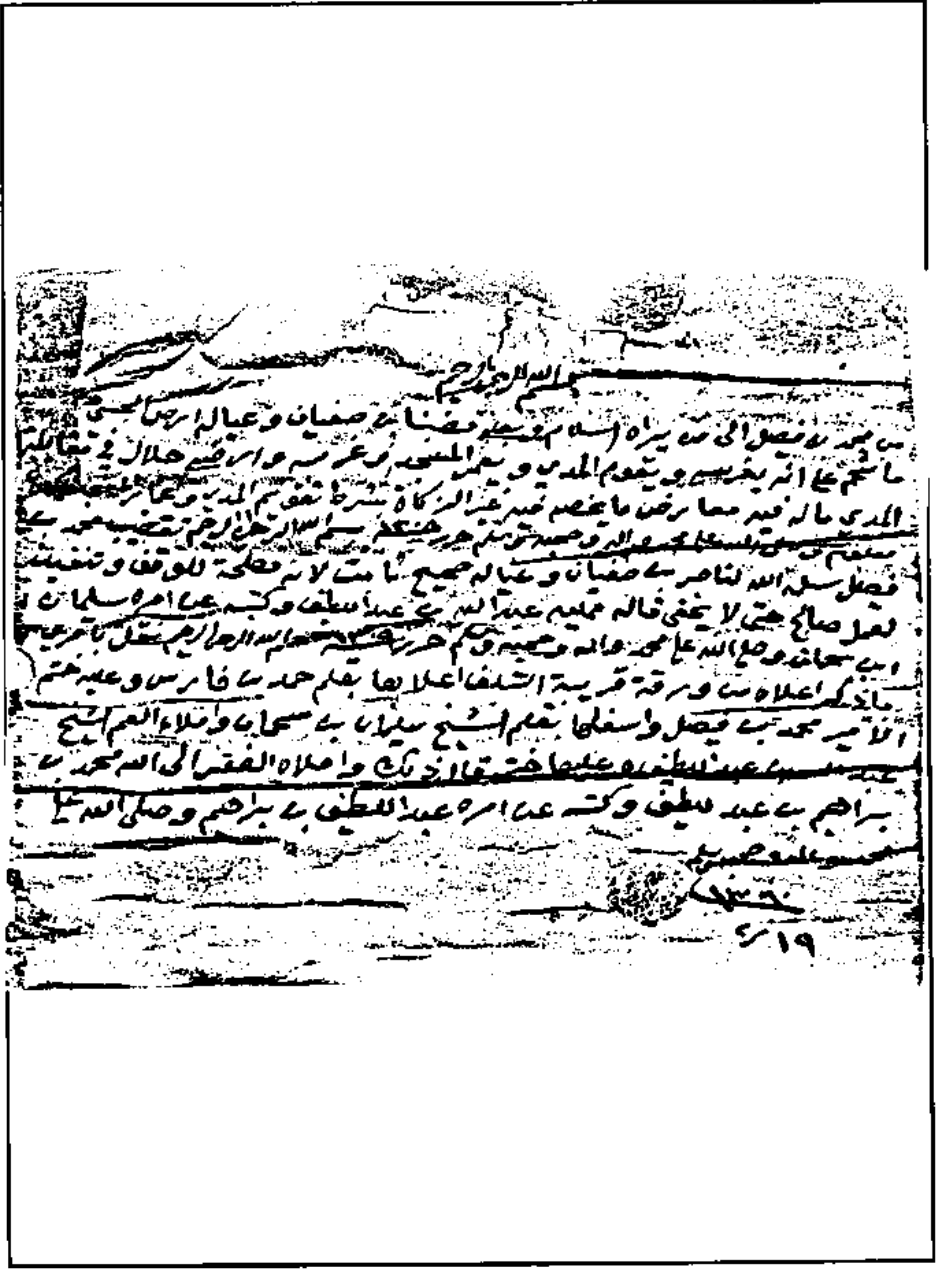 بسم الله الرحمن الرحيم
من محمد بن فيصل الى من يراه السلام وبعد قضبنا بن صفيان وعياله ارض
ما شحم على انه يغرسه ويقوم المدي ويعمر المسجد وغرسه وارضه حلال في مقابلة
المدي ماله فيه معارض ما يخصه فيه غير الزكاة بشرط تقويم المدي وعمار
وصلى الله على محمد واله وصحبه وسلم حرر بسم الله الرحمن الرحيم تقضيب محمد بن
فيصل سلمه الله لناصر بن صفيان وعياله صحيح ثابت لانه مصلحة للوقف وتنفيذ
لعمل صالح حتى لا يخفى قاله ممليه عبد الله بن عبد اللطيف وكتبه عن امره سليمان
ابن سحمان وصلى الله على محمد واله وصحبه وسلم حرر بسم الله الرحمن الرحيم نقل
ما ذكر اعلاه من ورقة قريبة التلف اعلاها بقلم حمد بن فارس وعليه ختم
الامير محمد بن فيصل واسفلها بقلم الشيخ سليمان بن سحمان واملاء العم الشيخ
عبد الله بن عبد اللطيف وعليها ختم قال ذلك واملاه الفقير الى الله محمد بن
براهيم بن عبد لطيف وكتبه عن امره عبد اللطيف بن براهيم وصلى الله على
محمد واله وصحبه وسلم
١٣٦٠
١٩